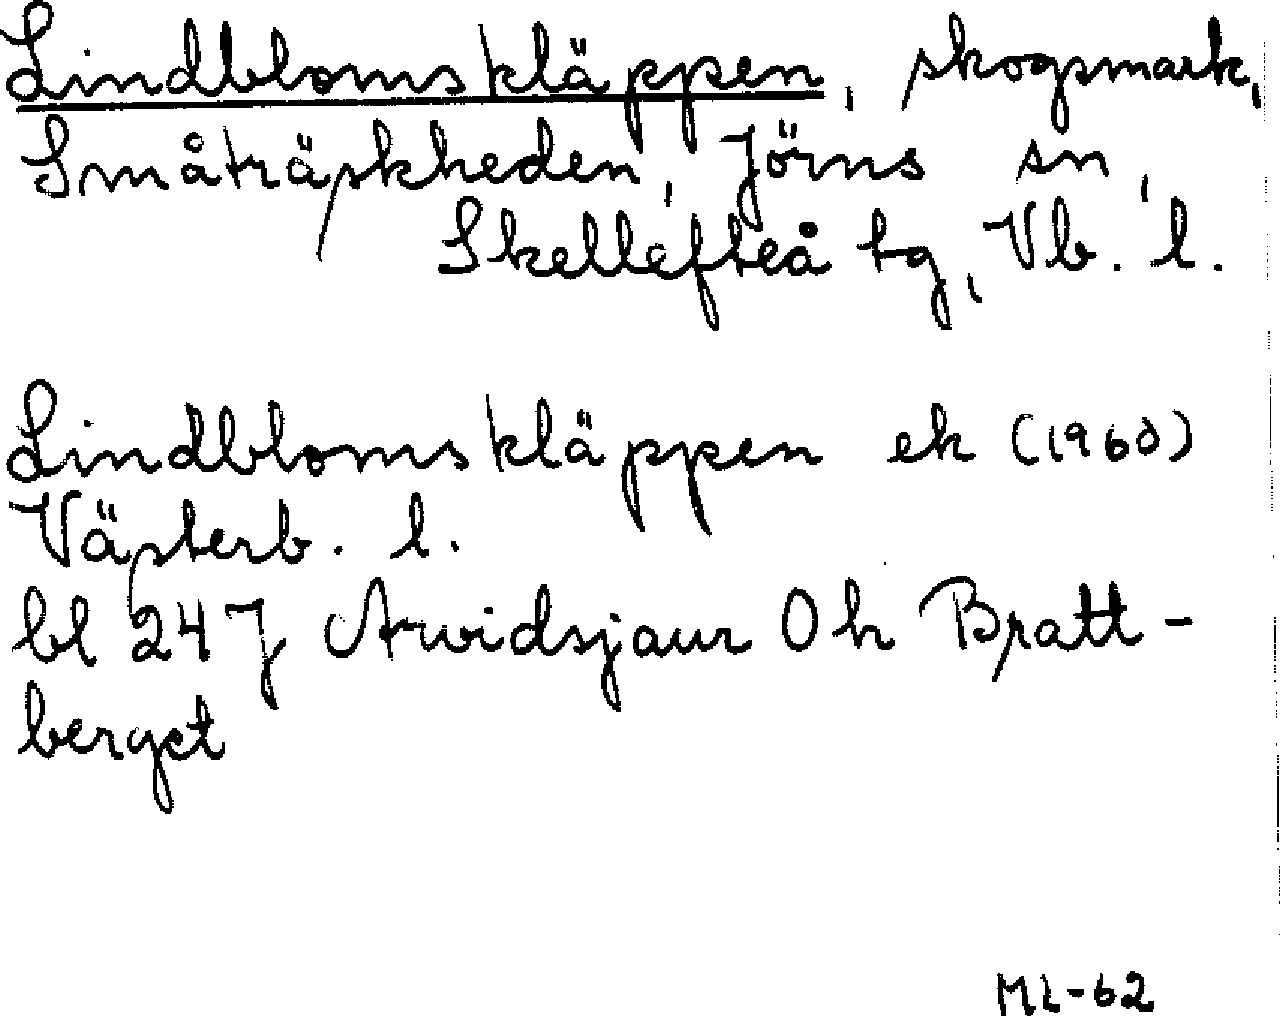 Lindblomskläppen, skogsmark,
Småträskheden, Jörns sn,
Skellefteå tg, Vb. l.
Lindblomskläppen ek (1960)
Västerb. l.
bl 24 J Arvidsjaur Ö h Bratt-
berget
ML-62